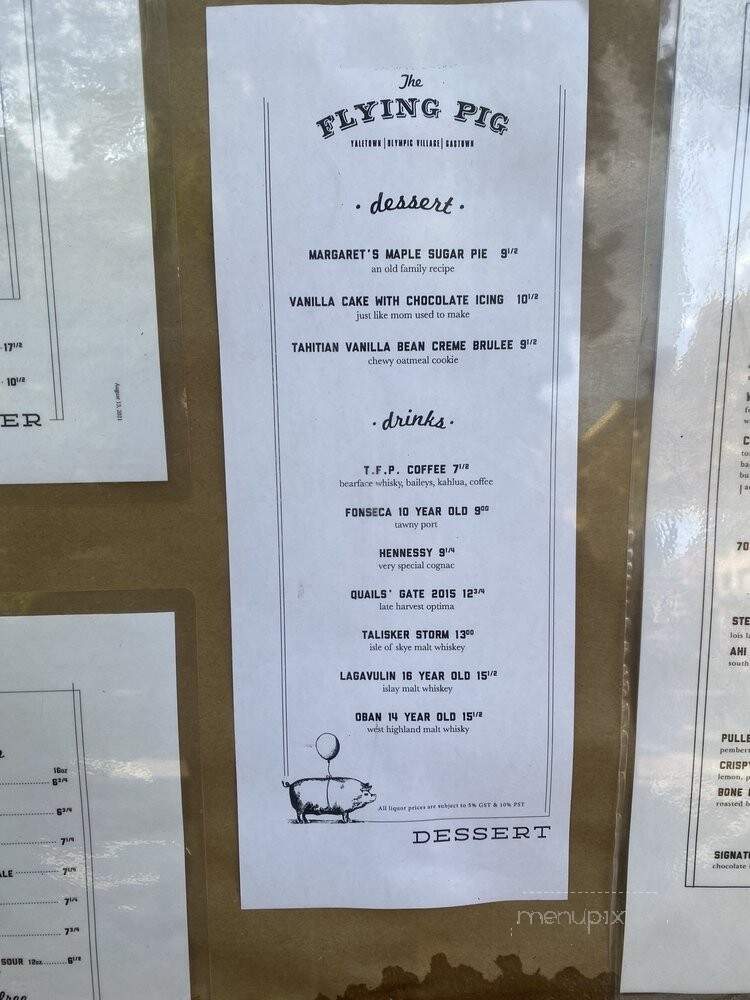 The
FLYING PIG
YALETOWN | OLYMPIC VILLAGE | GASTOWN
· dessert ·
MARGARET'S MAPLE SUGAR PIE 9 1/2
an old family recipe
VANILLA CAKE WITH CHOCOLATE ICING 10 1/2
just like mom used to make
TAHITIAN VANILLA BEAN CREME BRULEE 9 1/2
chewy oatmeal cookie
· drinks ·
T.F.P. COFFEE 7 1/2
bearface whisky, baileys, kahlua, coffee
FONSECA 10 YEAR OLD 9 00
tawny port
HENNESSY 9 1/4
very special cognac
QUAILS' GATE 2015 12 3/4
late harvest optima
TALISKER STORM 13 00
isle of skye malt whiskey
LAGAVULIN 16 YEAR OLD 15 1/2
islay malt whiskey
OBAN 14 YEAR OLD 15 1/2
west highland malt whisky
All liquor prices are subject to 5% GST & 10% PST
DESSERT
17 1/2
10 1/2
August 13, 2021
ER
16oz
6 3/4
6 3/4
7 1/4
ALE 7 1/4
7 1/4
7 3/4
SOUR 12oz 6 1/2
free
70
STE
lois la
AHI
south
PULLE
pembert
CRISPY
lemon, p
BONE
roasted b
SIGNATU
chocolate
menupix